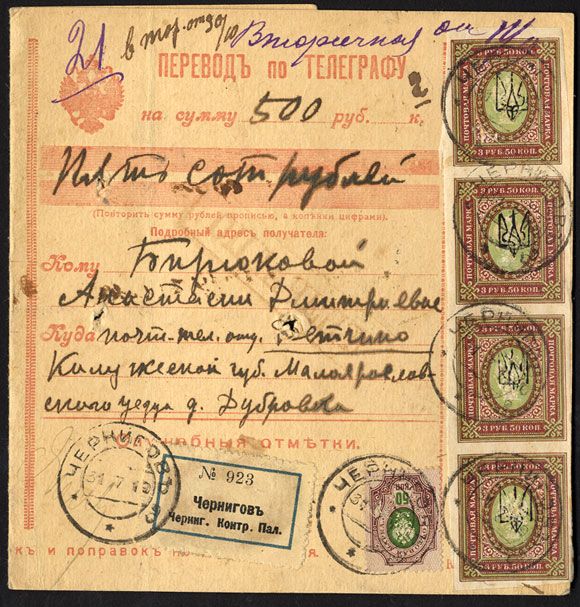 21 в тор. отдр Вторичная
ПЕРЕВОДЪ по ТЕЛЕГРАФУ
на сумму 500 руб. к.
Пять сот рублей
(Повторить сумму рублей прописью, а копѣйки цифрами).
Подробный адресъ получателя:
Кому Бирюковой
Анастасіи Дмитріевне
Куда почт.-тел. отд. Детчино
Калужской губ. Малоярослав-
ского уезда д. Дубровка
Служебныя отмѣтки.
ЧЕРНИГОВЪ
31 7 19
№ 923
Чернигов
Черниг. Контр. Пал.
ЧЕРНИГОВЪ
50
къ и поправокъ
ПОЧТОВАЯ МАРКА
3 РУБ. 50 КОП.
ПОЧТОВАЯ МАРКА
3 РУБ. 50 КОП.
ЧЕРНИГОВЪ
ПОЧТОВАЯ МАРКА
3 РУБ. 50 КОП.
ЧЕРНИГОВЪ
ПОЧТОВАЯ МАРКА
3 РУБ. 50 КОП.